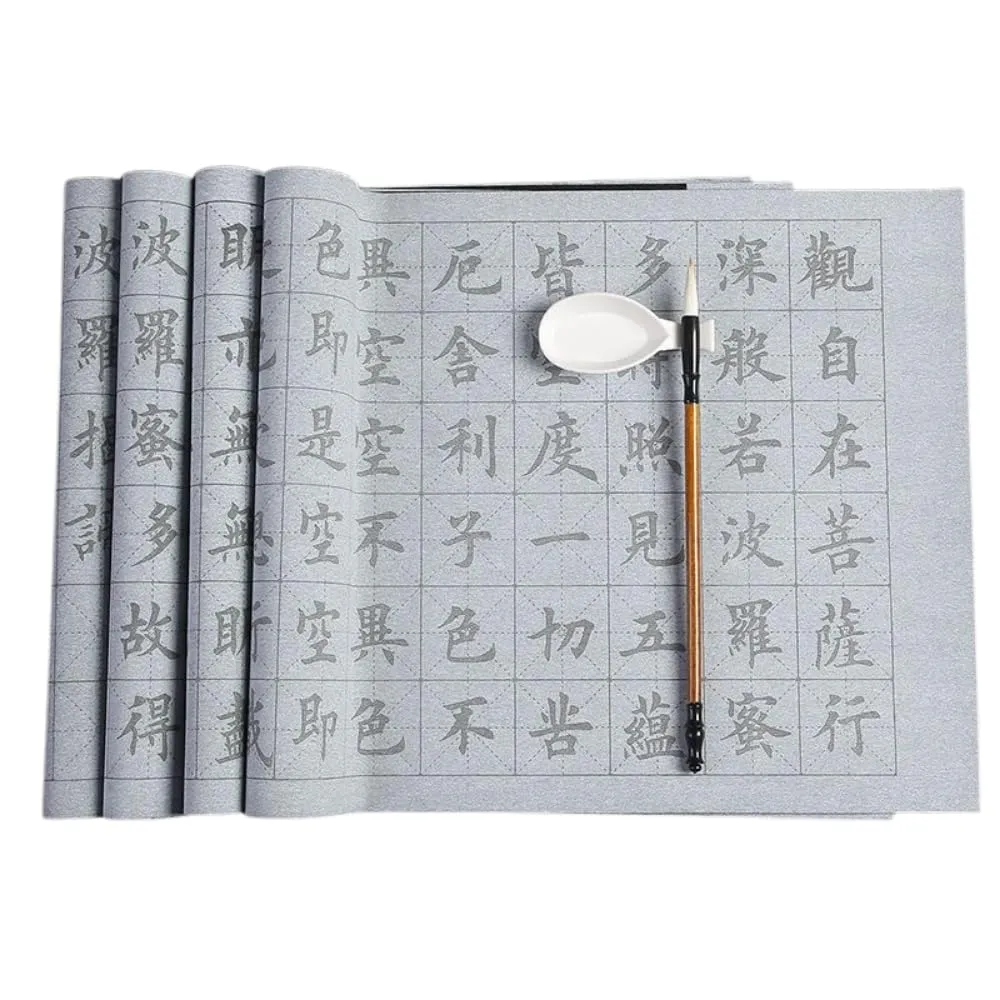 觀自在菩薩行
深般若波羅蜜
多照見五蘊
皆度一切苦
厄舍利子色不
異空空不異色
色即是空空即
眀亦無無眀盡
波羅蜜多故得
波羅揭諦